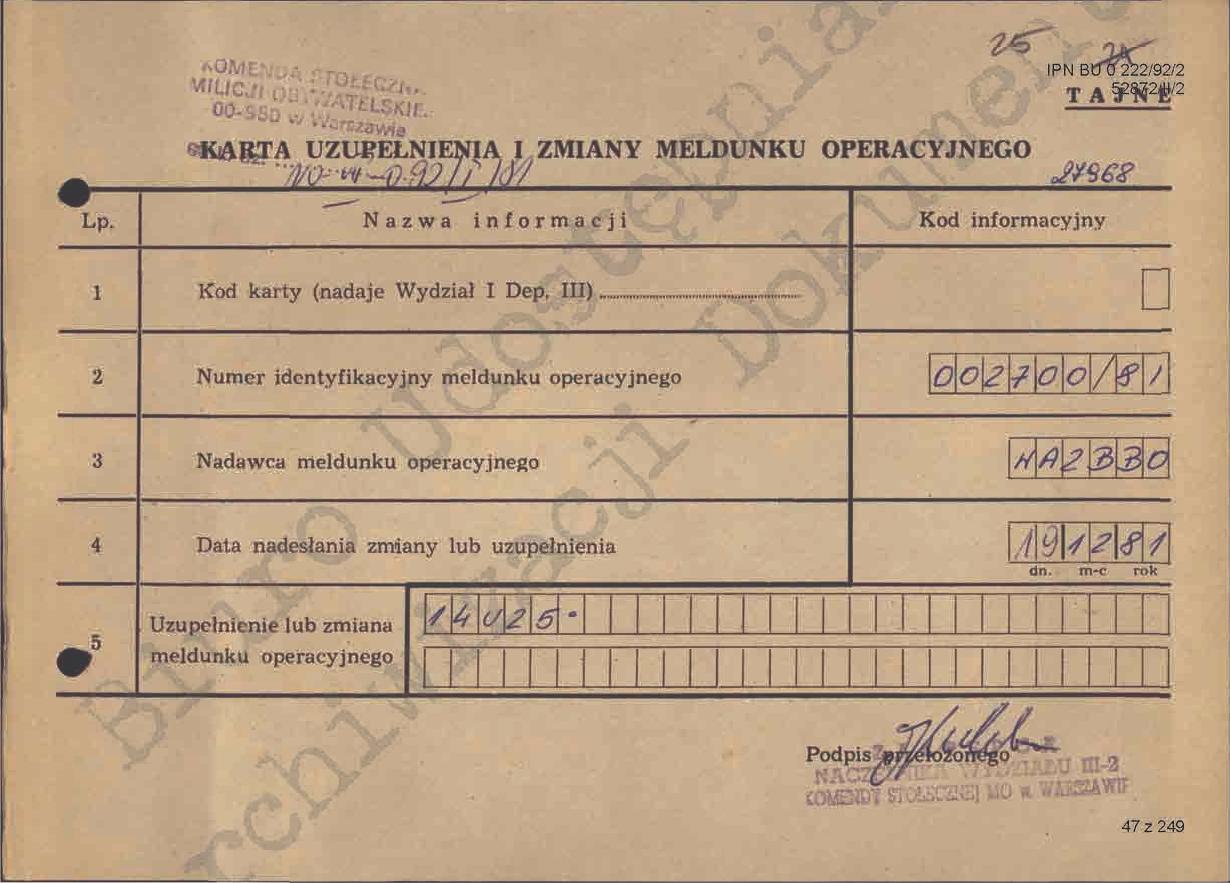 25 24
IPN BU 0 222/92/2
52872/II/2
TAJNE
KOMENDA STOŁECZN..
MILICJI OBYWATELSKIE.
00-950 w Warszawie
KARTA UZUPEŁNIENIA I ZMIANY MELDUNKU OPERACYJNEGO
27968
Lp. Nazwa informacji Kod informacyjny
1 Kod karty (nadaje Wydział I Dep. III)
2 Numer identyfikacyjny meldunku operacyjnego 002700/81
3 Nadawca meldunku operacyjnego WA2BB0
4 Data nadesłania zmiany lub uzupełnienia 191281
dn. m-c rok
5 Uzupełnienie lub zmiana meldunku operacyjnego 14U25.
Podpis przełożonego
NACZELNIKA WYDZIAŁU III-2
KOMENDY STOŁECZNEJ MO w WARSZAWIE
47 z 249
Biuro Udostępniania
Archiwizacji Dokumentów